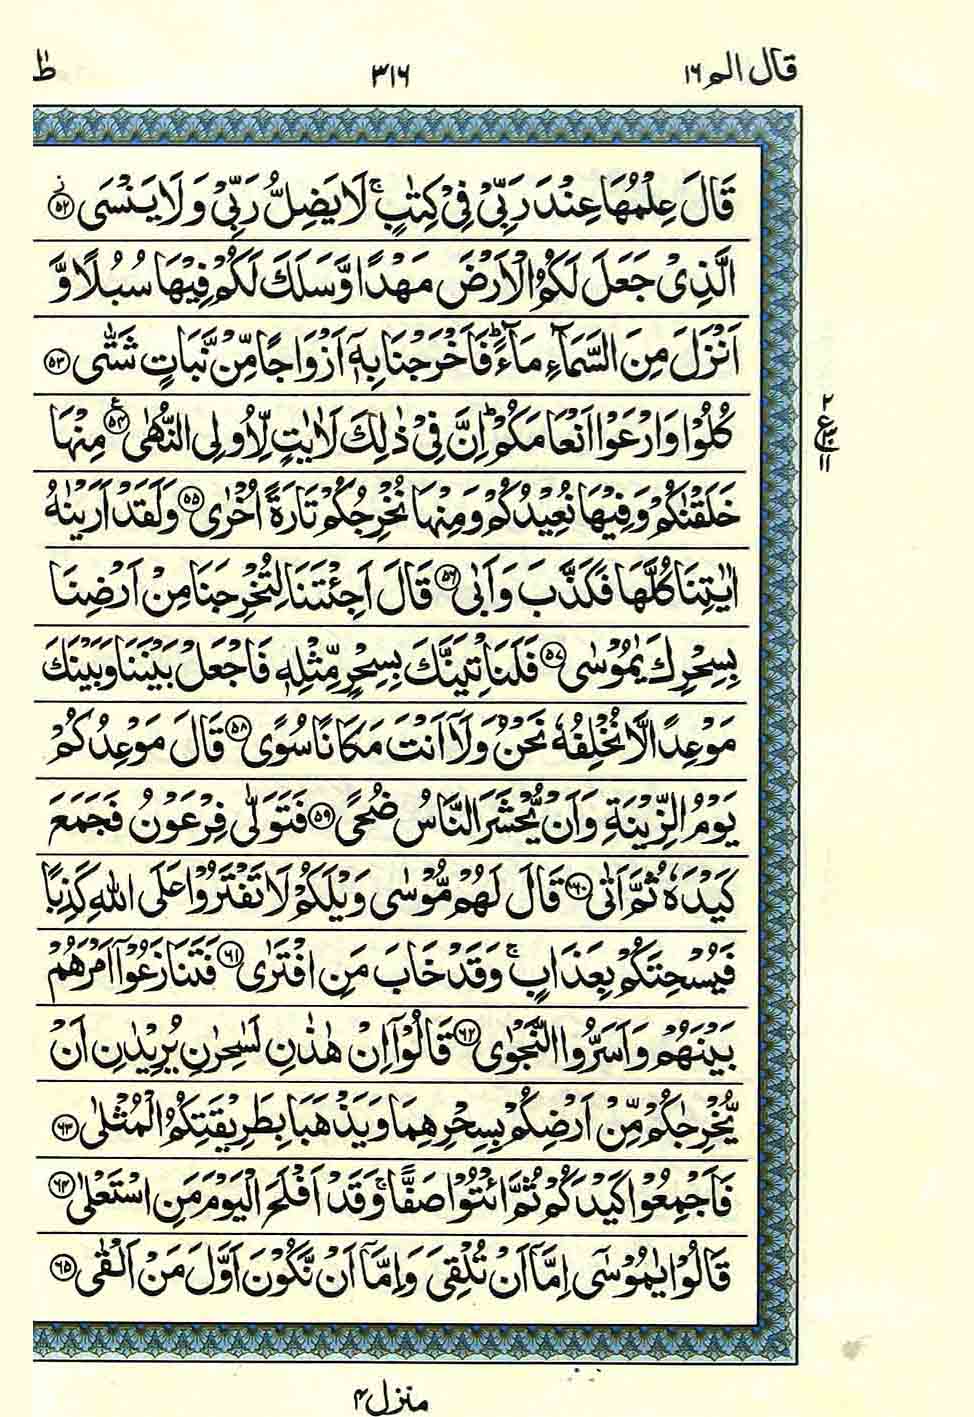 قال الم ۱۶
۳۱۶
طٰ
قَالَ عِلْمُهَا عِنْدَ رَبِّیْ فِیْ كِتٰبٍ ۚ لَا یَضِلُّ رَبِّیْ وَ لَا یَنْسَی ۟ۙ ۵۲
الَّذِیْ جَعَلَ لَكُمُ الْاَرْضَ مَهْدًا وَّ سَلَكَ لَكُمْ فِیْهَا سُبُلًا وَّ
اَنْزَلَ مِنَ السَّمَآءِ مَآءً ؕ فَاَخْرَجْنَا بِهٖۤ اَزْوَاجًا مِّنْ نَّبَاتٍ شَتّٰی ۵۳
كُلُوْا وَ ارْعَوْا اَنْعَامَكُمْ ؕ اِنَّ فِیْ ذٰلِكَ لَاٰیٰتٍ لِّاُولِی النُّهٰی ۵۴ ع مِنْهَا
خَلَقْنٰكُمْ وَ فِیْهَا نُعِیْدُكُمْ وَ مِنْهَا نُخْرِجُكُمْ تَارَةً اُخْرٰی ۵۵ وَ لَقَدْ اَرَیْنٰهُ
اٰیٰتِنَا كُلَّهَا فَكَذَّبَ وَ اَبٰی ۵۶ قَالَ اَجِئْتَنَا لِتُخْرِجَنَا مِنْ اَرْضِنَا
بِسِحْرِكَ یٰمُوْسٰی ۵۷ فَلَنَاْتِیَنَّكَ بِسِحْرٍ مِّثْلِهٖ فَاجْعَلْ بَیْنَنَا وَ بَیْنَكَ
مَوْعِدًا لَّا نُخْلِفُهٗ نَحْنُ وَ لَاۤ اَنْتَ مَكَانًا سُوًی ۵۸ قَالَ مَوْعِدُكُمْ
یَوْمُ الزِّیْنَةِ وَ اَنْ یُّحْشَرَ النَّاسُ ضُحًی ۵۹ فَتَوَلّٰی فِرْعَوْنُ فَجَمَعَ
كَیْدَهٗ ثُمَّ اَتٰی ۶۰ قَالَ لَهُمْ مُّوْسٰی وَیْلَكُمْ لَا تَفْتَرُوْا عَلَی اللّٰهِ كَذِبًا
فَیُسْحِتَكُمْ بِعَذَابٍ ۚ وَ قَدْ خَابَ مَنِ افْتَرٰی ۶۱ فَتَنَازَعُوْۤا اَمْرَهُمْ
بَیْنَهُمْ وَ اَسَرُّوا النَّجْوٰی ۶۲ قَالُوْۤا اِنْ هٰذٰنِ لَسٰحِرٰنِ یُرِیْدٰنِ اَنْ
یُّخْرِجٰكُمْ مِّنْ اَرْضِكُمْ بِسِحْرِهِمَا وَ یَذْهَبَا بِطَرِیْقَتِكُمُ الْمُثْلٰی ۶۳
فَاَجْمِعُوْا كَیْدَكُمْ ثُمَّ ائْتُوْا صَفًّا ۚ وَ قَدْ اَفْلَحَ الْیَوْمَ مَنِ اسْتَعْلٰی ۶۴
قَالُوْا یٰمُوْسٰۤی اِمَّاۤ اَنْ تُلْقِیَ وَ اِمَّاۤ اَنْ نَّكُوْنَ اَوَّلَ مَنْ اَلْقٰی ۶۵
۲
ع
۱۱
منزل ۴